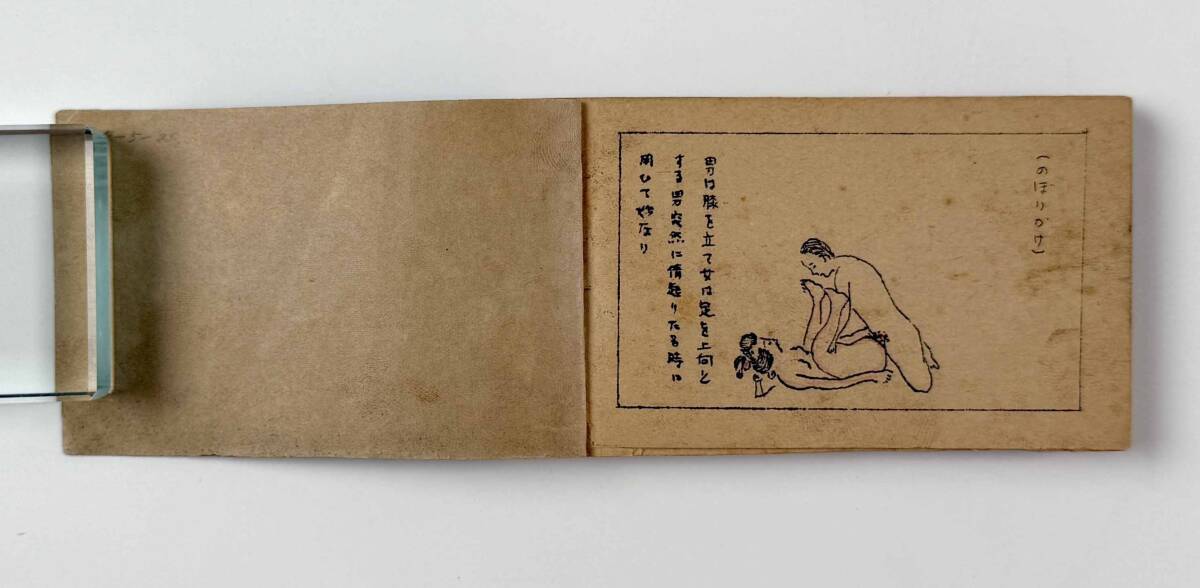 (のぼりかけ)
男は膝を立て女は足を上向と
する男突然に情起りたる時に
用ひて妙なり